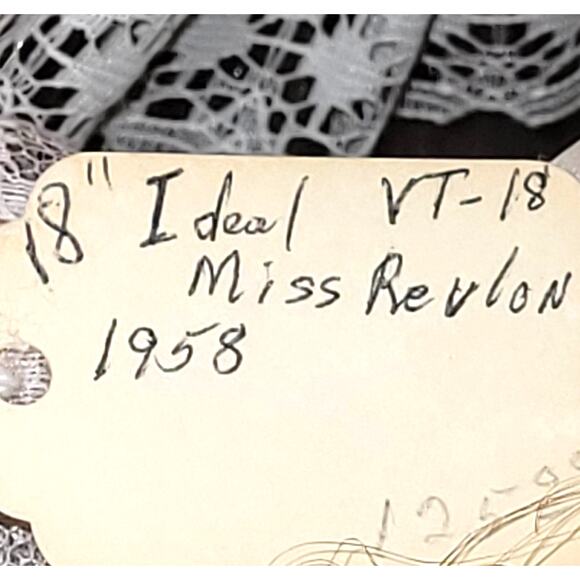 18" Ideal VT-18
Miss Revlon
1958